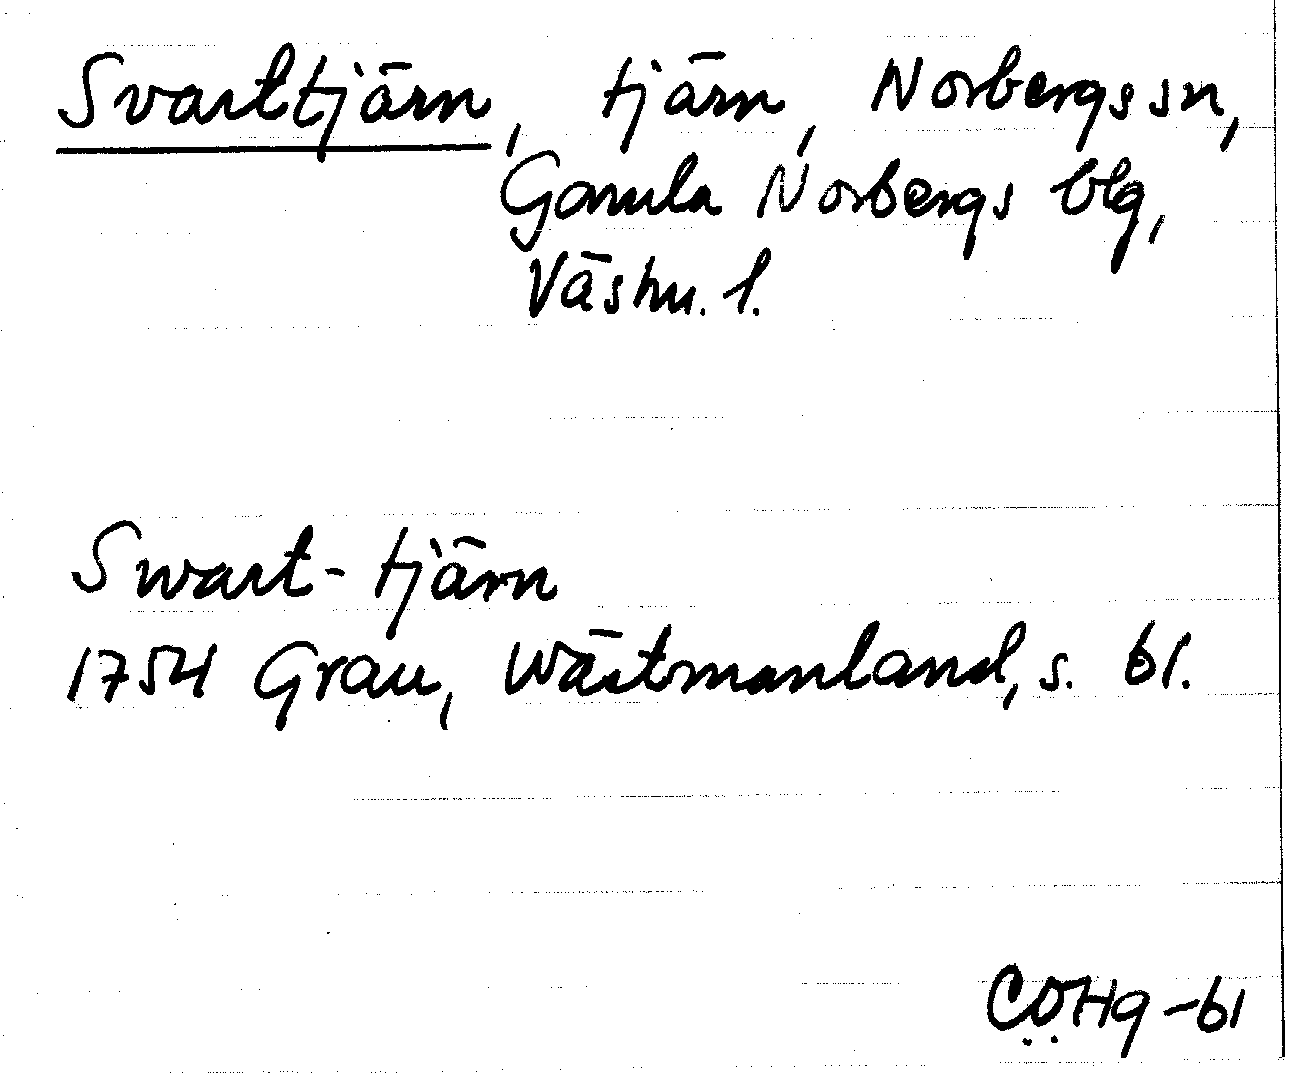 Svarttjärn, tjärn, Norbergs sn,
Gamla Norbergs blg,
Västm. l.
Swart-tjärn
1754 Grau, Wästmanland, s. 61.
CÖHg -61